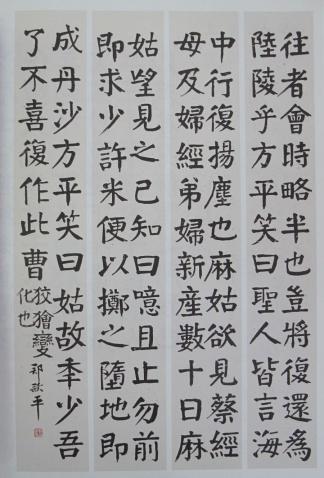 往者會時略半也豈將復還為
陸陵乎方平笑曰聖人皆言海
中行復揚塵也麻姑欲見蔡經
母及婦經弟婦新產數十日麻
姑望見之已知曰噫且止勿前
即求少許米便以擲之隨地即
成丹沙方平笑曰姑故秊少吾
了不喜復作此曹狡獪變
化也